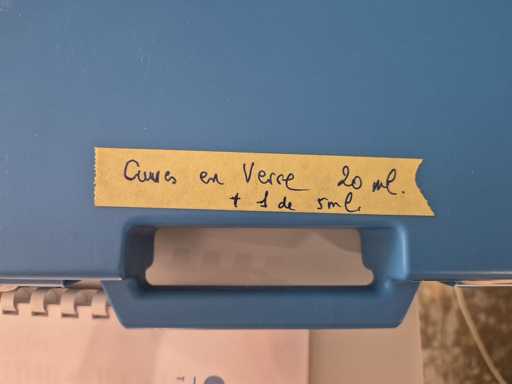 Cuves en Verre 20 ml.
+ 1 de 5ml.